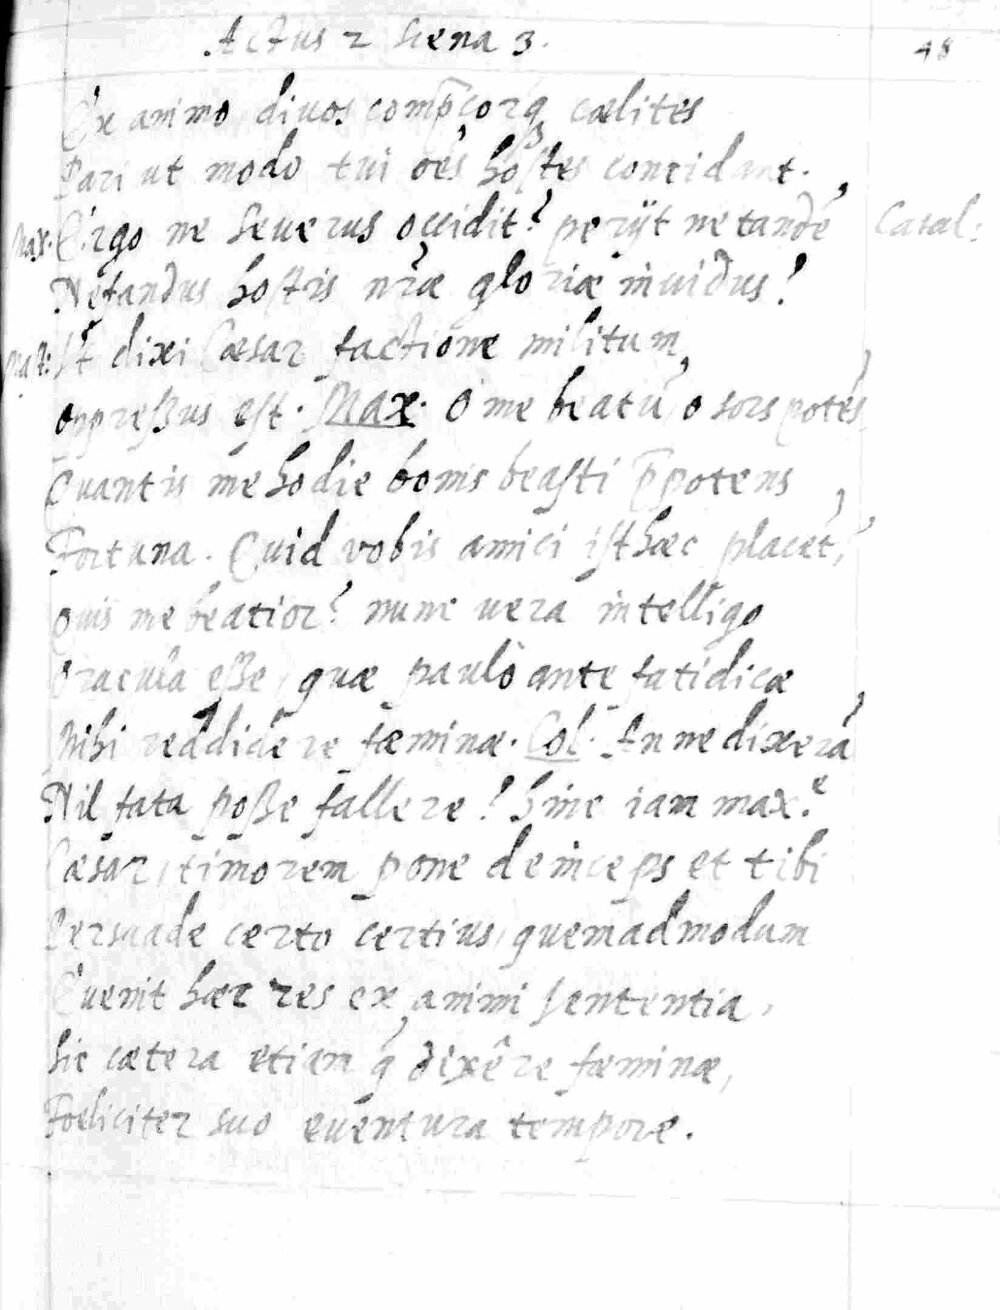 Actus 2 Scena 3. 48
Ex animo divos comp̄corq̨ cælites
Pari ut modo tui oēs hostes concidant.
Max. Ergo ne Severus occidit? perijt ne tandē
Nefandus hostis nr̄æ gloriæ invidus!
Mar: Ut dixi Cæsar factione militum
oppreßus est. Max. O me beatū, o sors potēs
Quantis me hodie bonis beasti p̄potens
Fortuna. Quid vobis amici isthæc placēt?
Quis me beatior? nunc vera intelligo
Oracula eße, quæ paulò ante fatidicæ
Mihi reddidere fæminæ. Col. An ne dixerā
Nil fata poße fallere! hinc iam max.e
Cæsar, timorem pone deinceps et tibi
Persuade certo certius, quemadmodum
Evenit hæc res ex animi sententia,
Sic cætera etiam q̄ dixêre fæminæ,
Fœliciter suo eventura tempore.